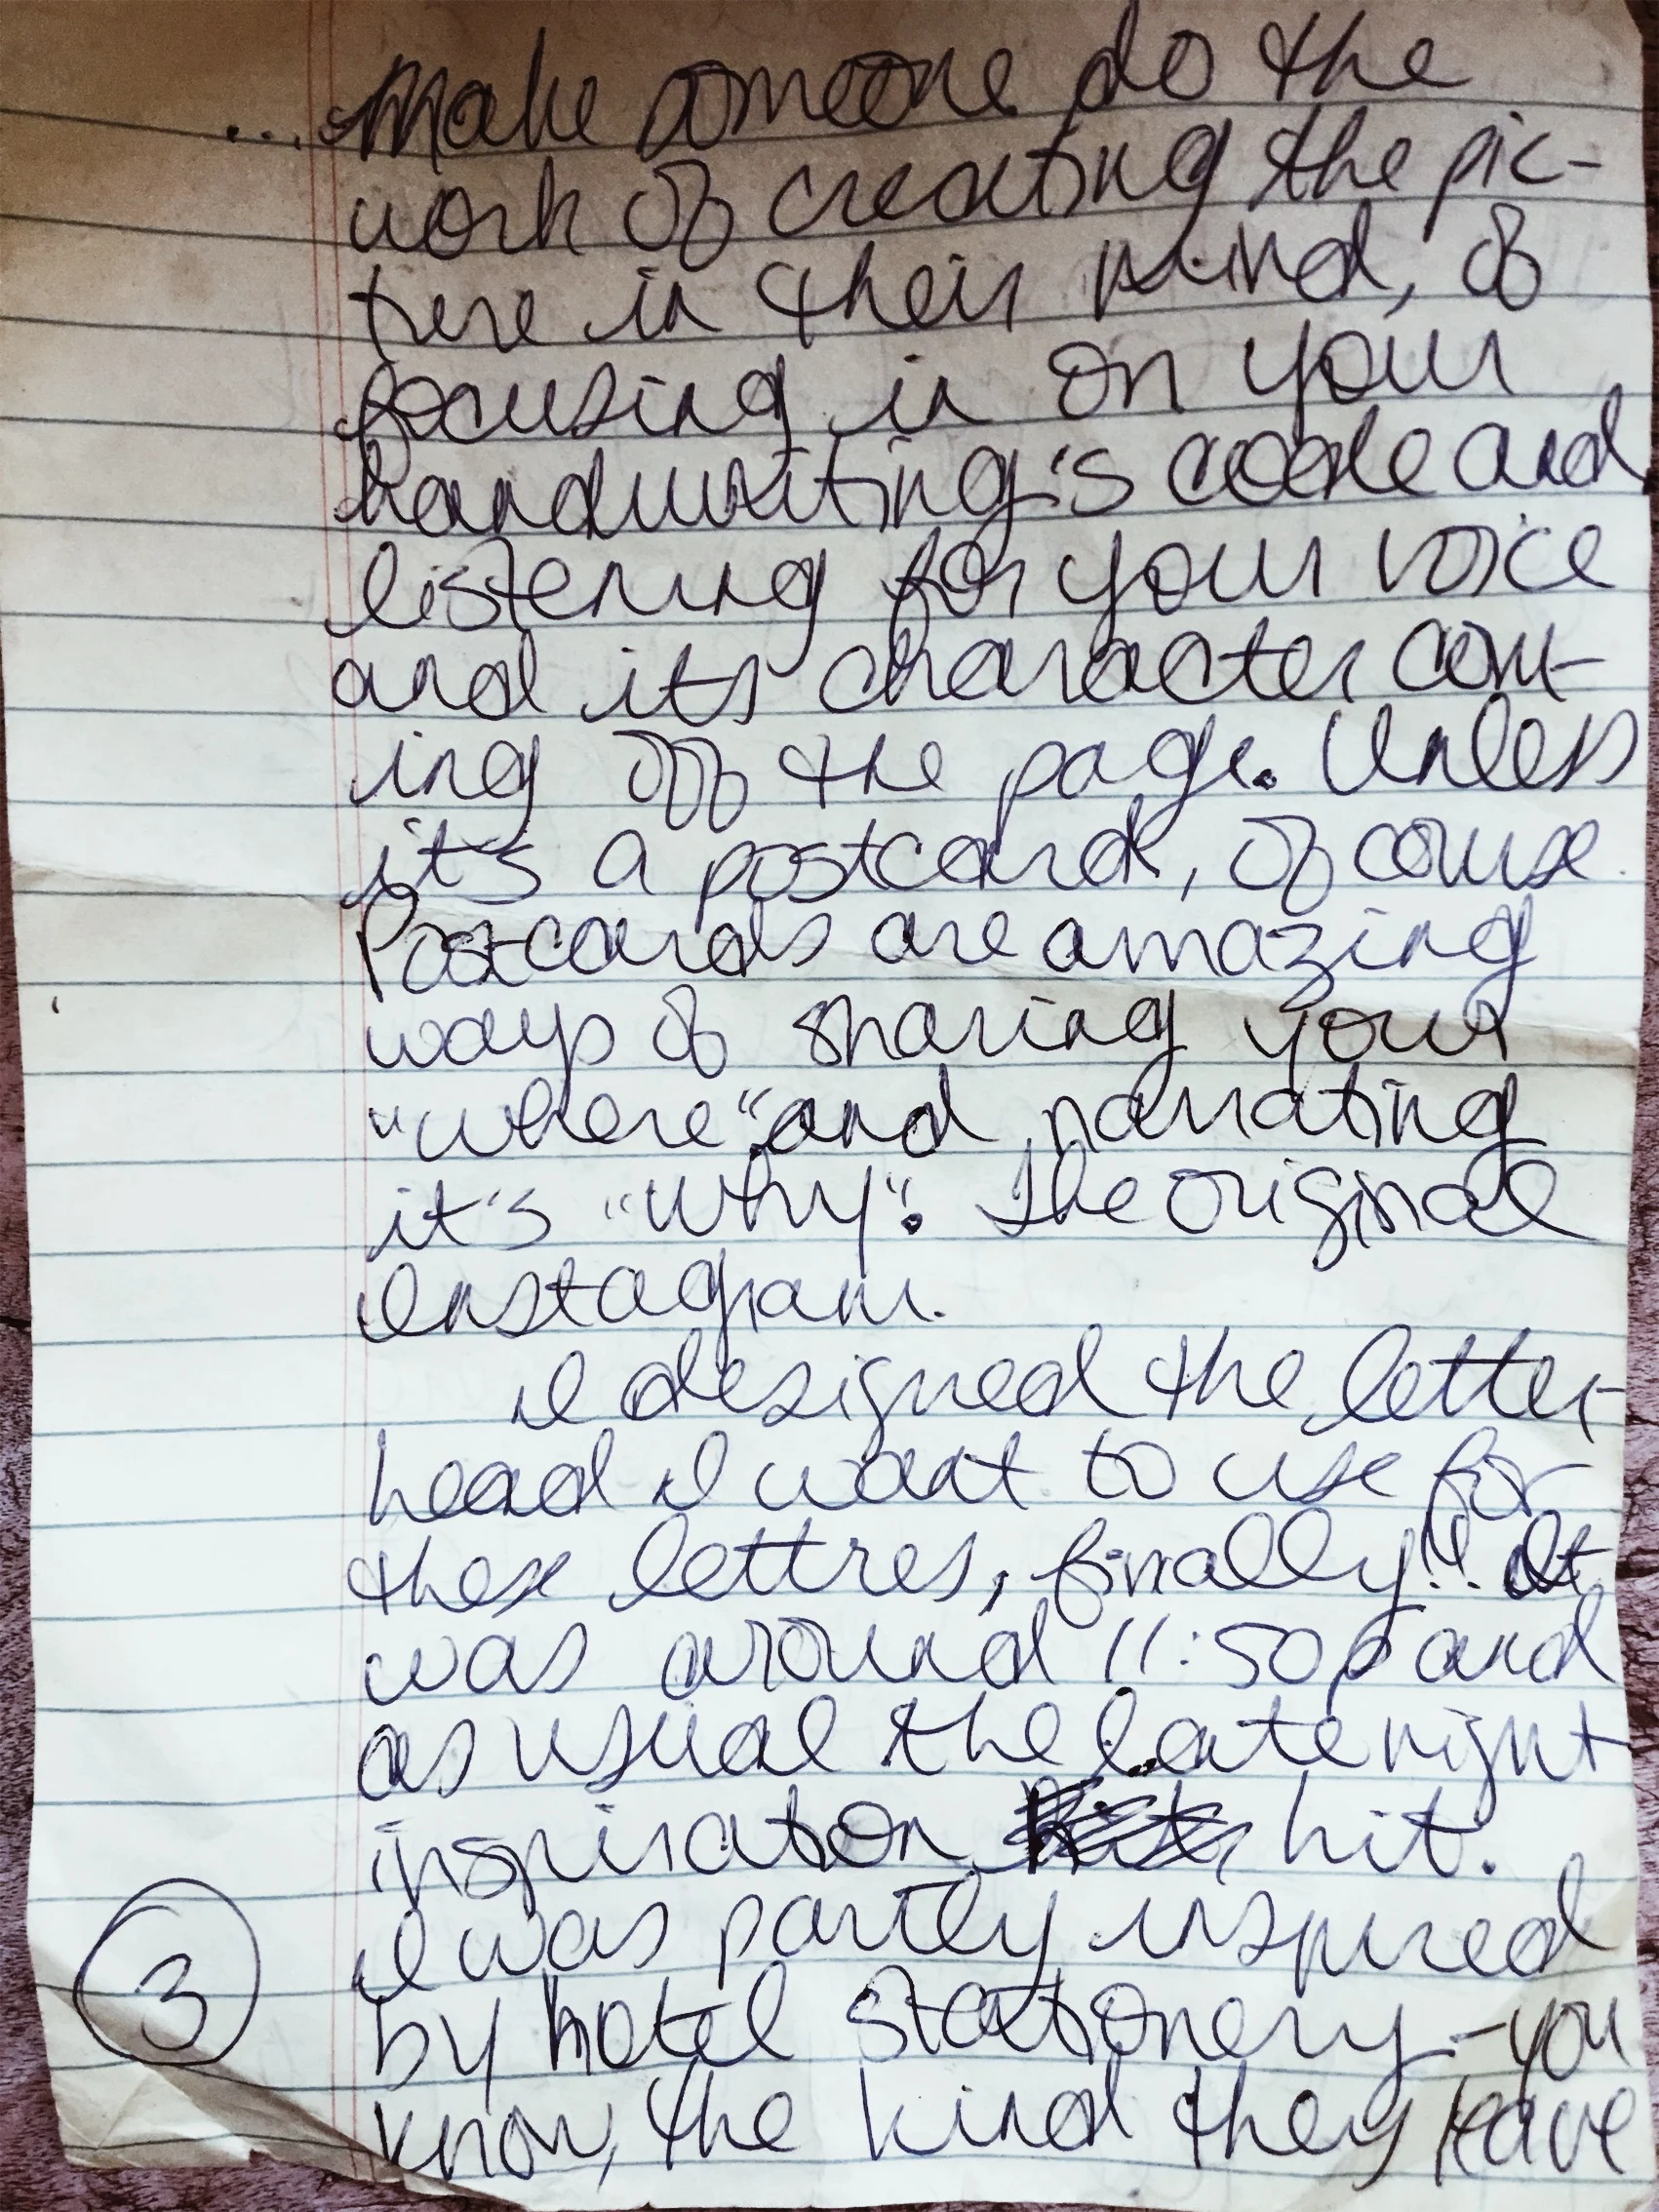 ...make someone do the
work of creating the pic-
ture in their mind, of
focusing in on your
handwriting's code and
listening for your voice
and its character com-
ing off the page. Unless
it's a postcard, of course.
Postcards are amazing
ways of sharing your
"where" and narrating
it's "why". The original
Instagram.
I designed the letter-
head I want to use for
these lettres, finally!! It
was around 11:50p and
as usual the late night
inspiration hit.
I was partly inspired
by hotel stationery - you
know, the kind they leave
3